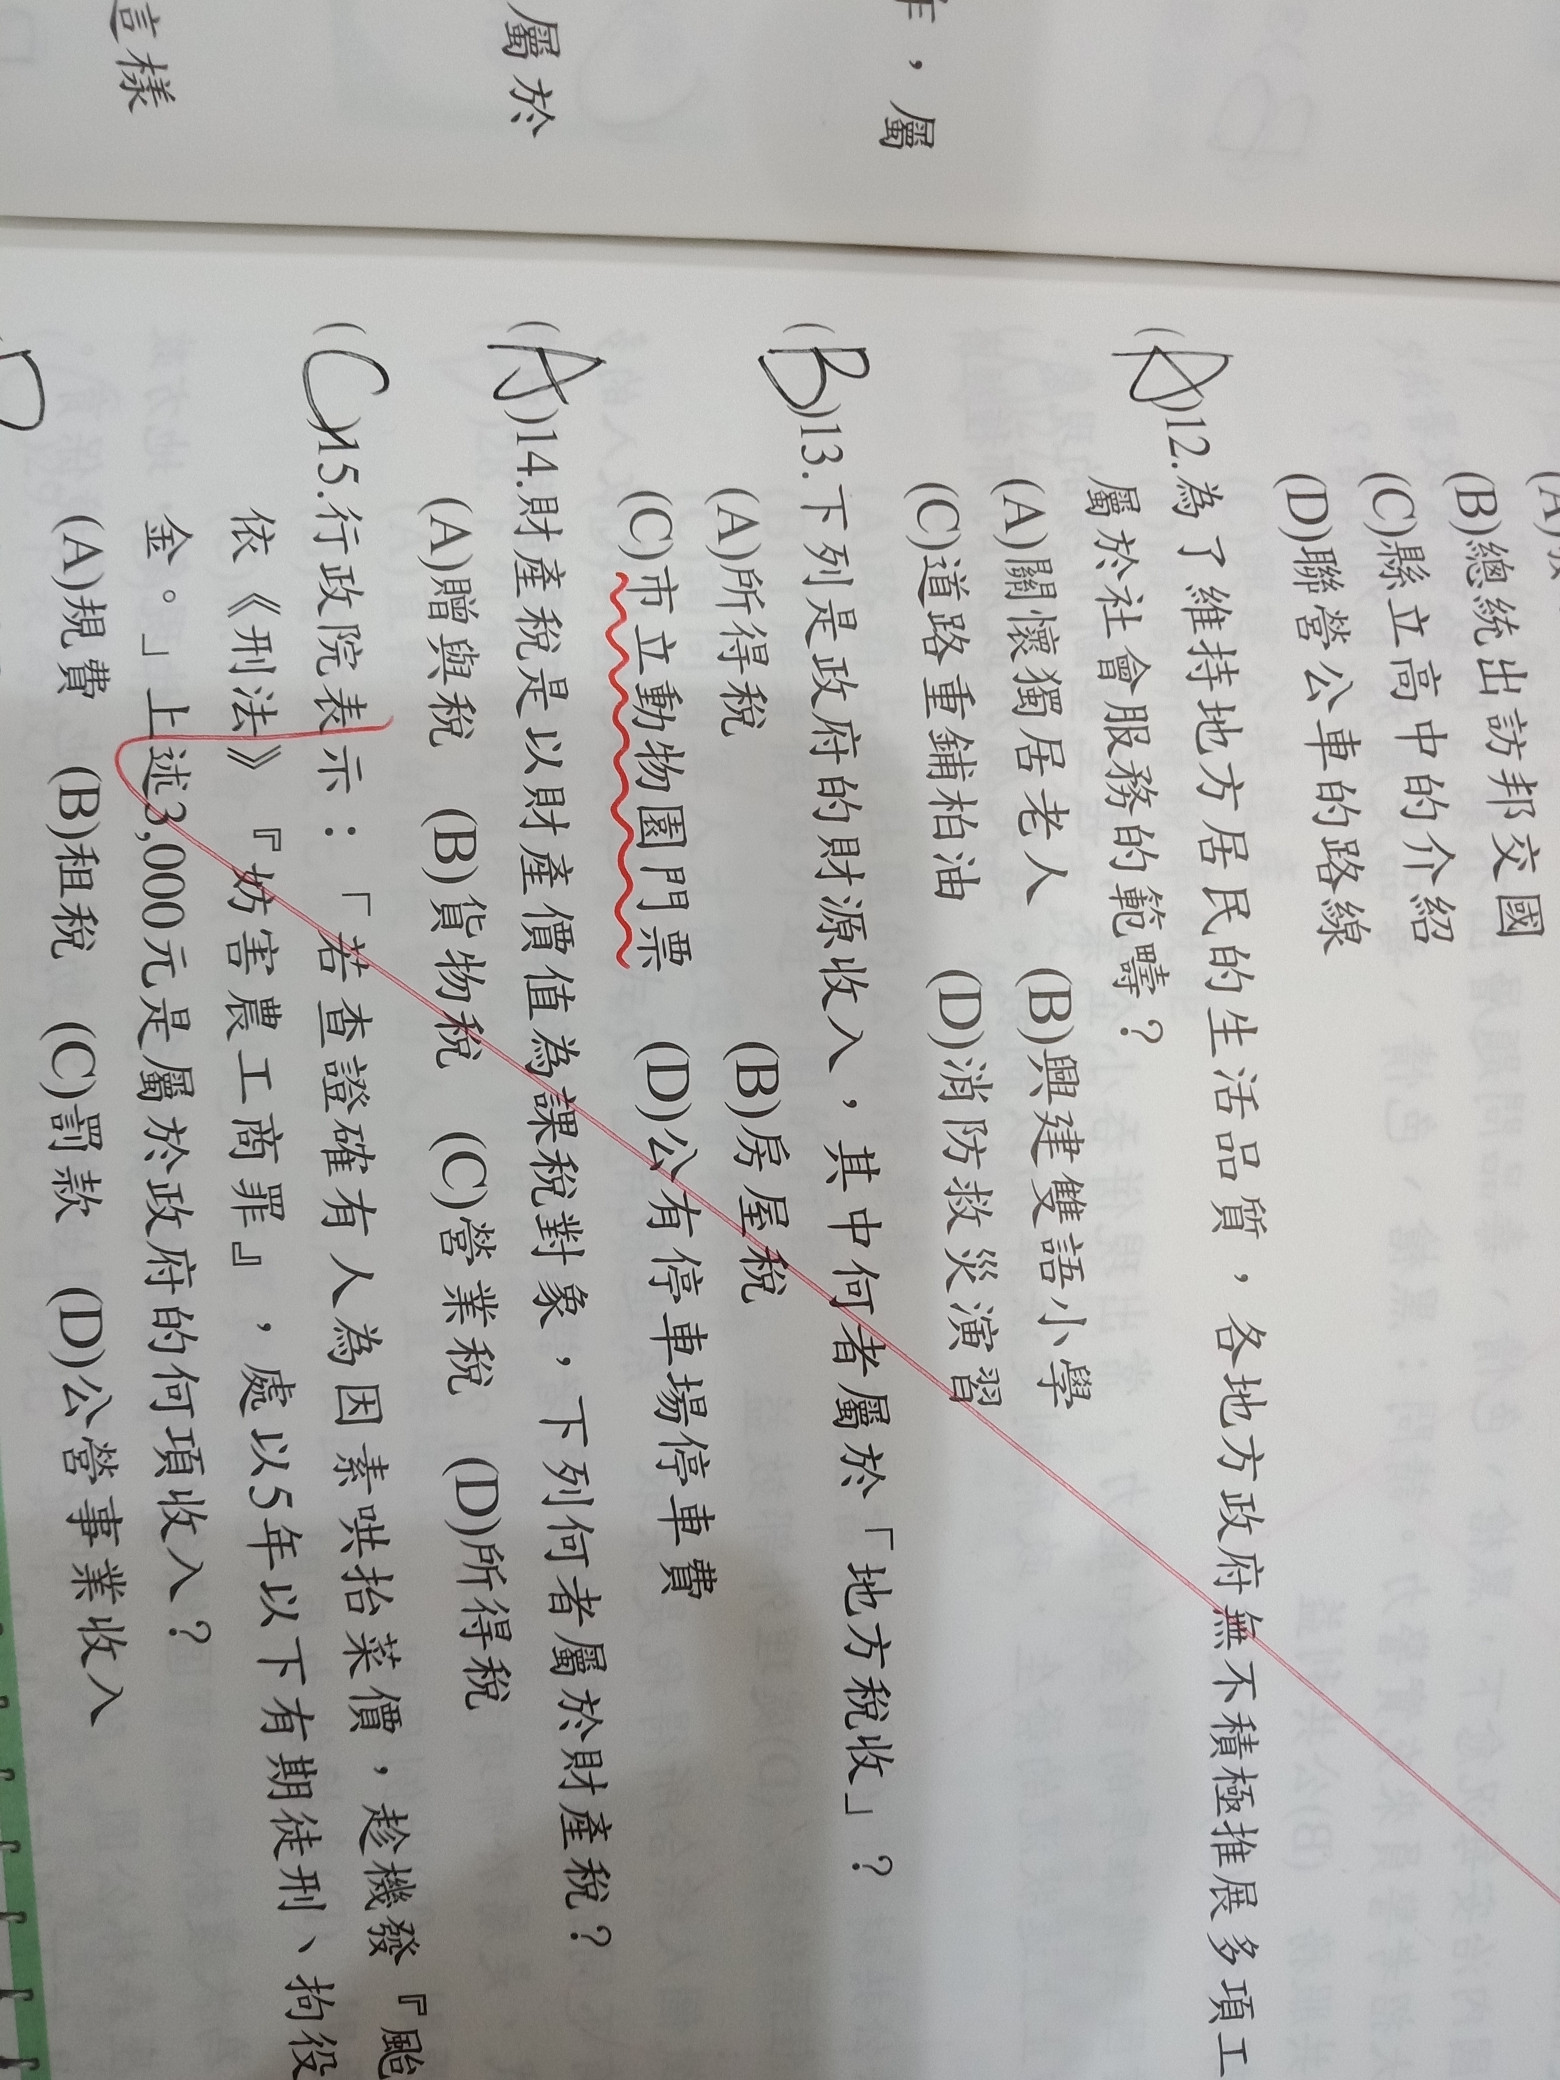 年，屬
屬於
這樣
(B)總統出訪邦交國
(C)縣立高中的介紹
(D)聯營公車的路線
(A)12.為了維持地方居民的生活品質，各地方政府無不積極推展多項工
屬於社會服務的範疇？
(A)關懷獨居老人 (B)興建雙語小學
(C)道路重鋪柏油 (D)消防救災演習
(B)13.下列是政府的財源收入，其中何者屬於「地方稅收」？
(A)所得稅 (B)房屋稅
(C)市立動物園門票 (D)公有停車場停車費
(A)14.財產稅是以財產價值為課稅對象，下列何者屬於財產稅？
(A)贈與稅 (B)貨物稅 (C)營業稅 (D)所得稅
(C)15.行政院表示：「若查證確有人為因素哄抬菜價，趁機發『颱
依《刑法》『妨害農工商罪』，處以5年以下有期徒刑、拘役
金。」上述3,000元是屬於政府的何項收入？
(A)規費 (B)租稅 (C)罰款 (D)公營事業收入